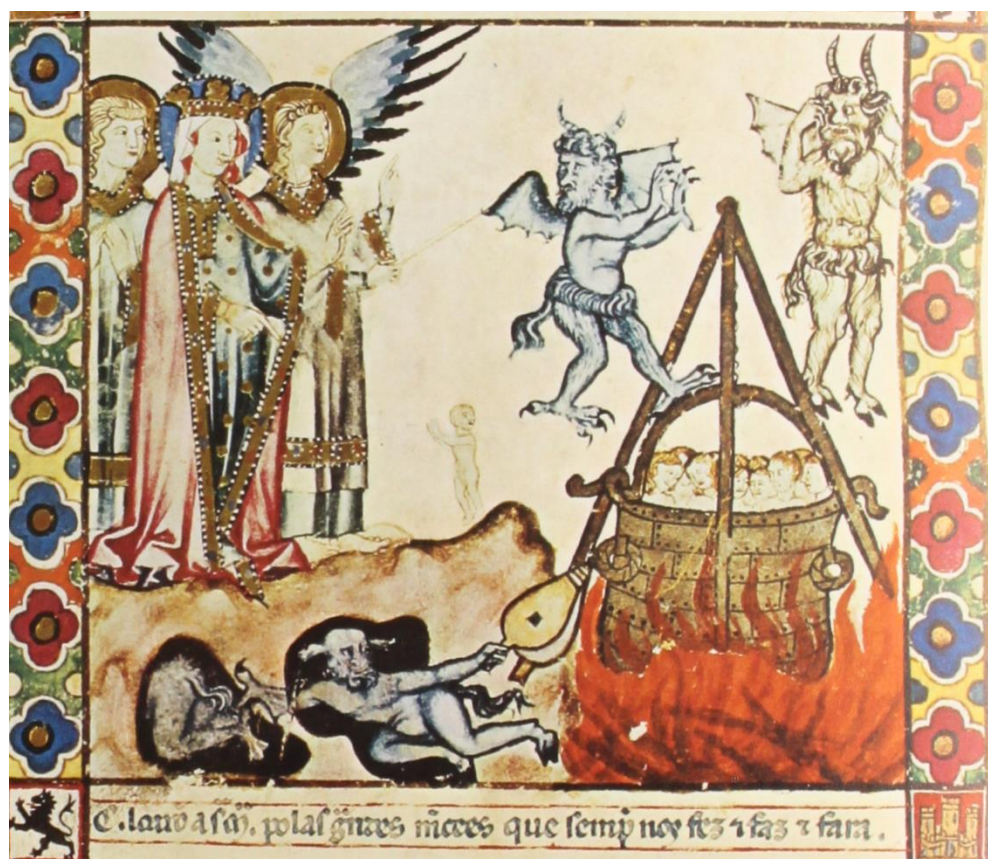 C. loaud a s.m. polas grãtes mr̃cees que semp̃ nos fez ⁊ faz ⁊ fara.